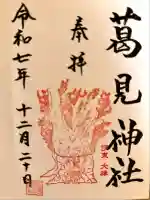 葛見神社
奉拝
令和七年
十二月二十日